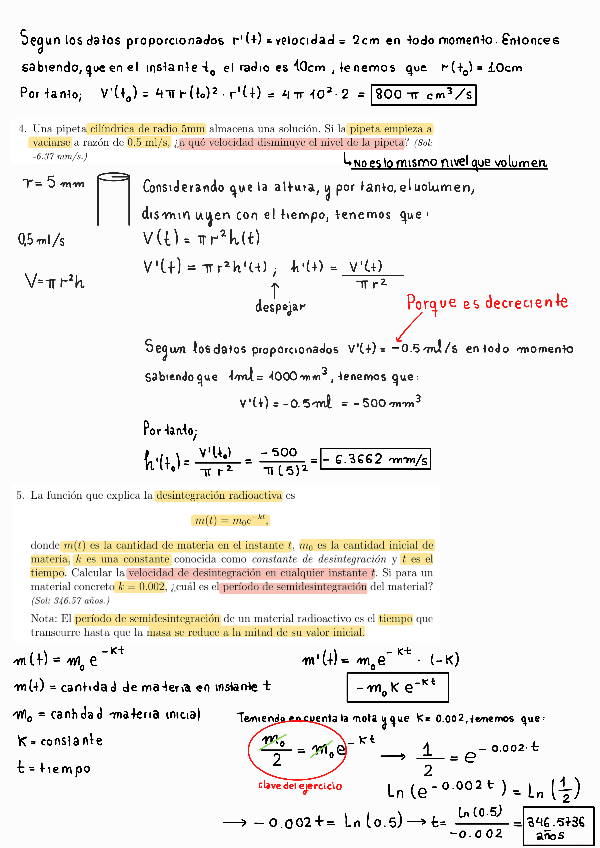 Segun los datos proporcionados r'(t) = velocidad = 2cm en todo momento. Entonces
sabiendo, que en el instante t₀ el radio es 10cm, tenemos que r(t₀) = 10cm
Por tanto; V'(t₀) = 4πr(t₀)² · r'(t) = 4π 10² · 2 = 800 π cm³/s
4. Una pipeta cilíndrica de radio 5mm almacena una solución. Si la pipeta empieza a
vaciarse a razón de 0.5 ml/s, ¿a qué velocidad disminuye el nivel de la pipeta? (Sol:
-6.37 mm/s.)
↳ No es lo mismo nivel que volumen
r = 5 mm
0,5 ml/s
V = πr²h
Considerando que la altura, y por tanto, el volumen,
disminuyen con el tiempo, tenemos que:
V(t) = πr²h(t)
V'(t) = πr²h'(t) ; h'(t) = V'(t) / πr²
↑
despejar
Porque es decreciente
Segun los datos proporcionados V'(t) = -0.5 ml/s en todo momento
sabiendo que 1ml = 1000 mm³, tenemos que:
V'(t) = -0.5 ml = -500 mm³
Por tanto;
h'(t₀) = V'(t₀) / πr² = -500 / π(5)² = -6.3662 mm/s
5. La función que explica la desintegración radioactiva es
m(t) = m₀e^-kt,
donde m(t) es la cantidad de materia en el instante t, m₀ es la cantidad inicial de
materia, k es una constante conocida como constante de desintegración y t es el
tiempo. Calcular la velocidad de desintegración en cualquier instante t. Si para un
material concreto k = 0.002, ¿cuál es el período de semidesintegración del material?
(Sol: 346.57 años.)
Nota: El período de semidesintegración de un material radioactivo es el tiempo que
transcurre hasta que la masa se reduce a la mitad de su valor inicial.
m(t) = m₀ e^-Kt
m(t) = cantidad de materia en instante t
m₀ = cantidad materia inicial
K = constante
t = tiempo
m'(t) = m₀e^-Kt · (-K)
-m₀ K e^-Kt
Teniendo en cuenta la nota y que K = 0.002, tenemos que:
m₀/2 = m₀e^-Kt → 1/2 = e^-0.002·t
clave del ejercicio
Ln (e^-0.002t) = Ln (1/2)
→ -0.002t = Ln(0.5) → t = Ln(0.5) / -0.002 = 346.5736 años